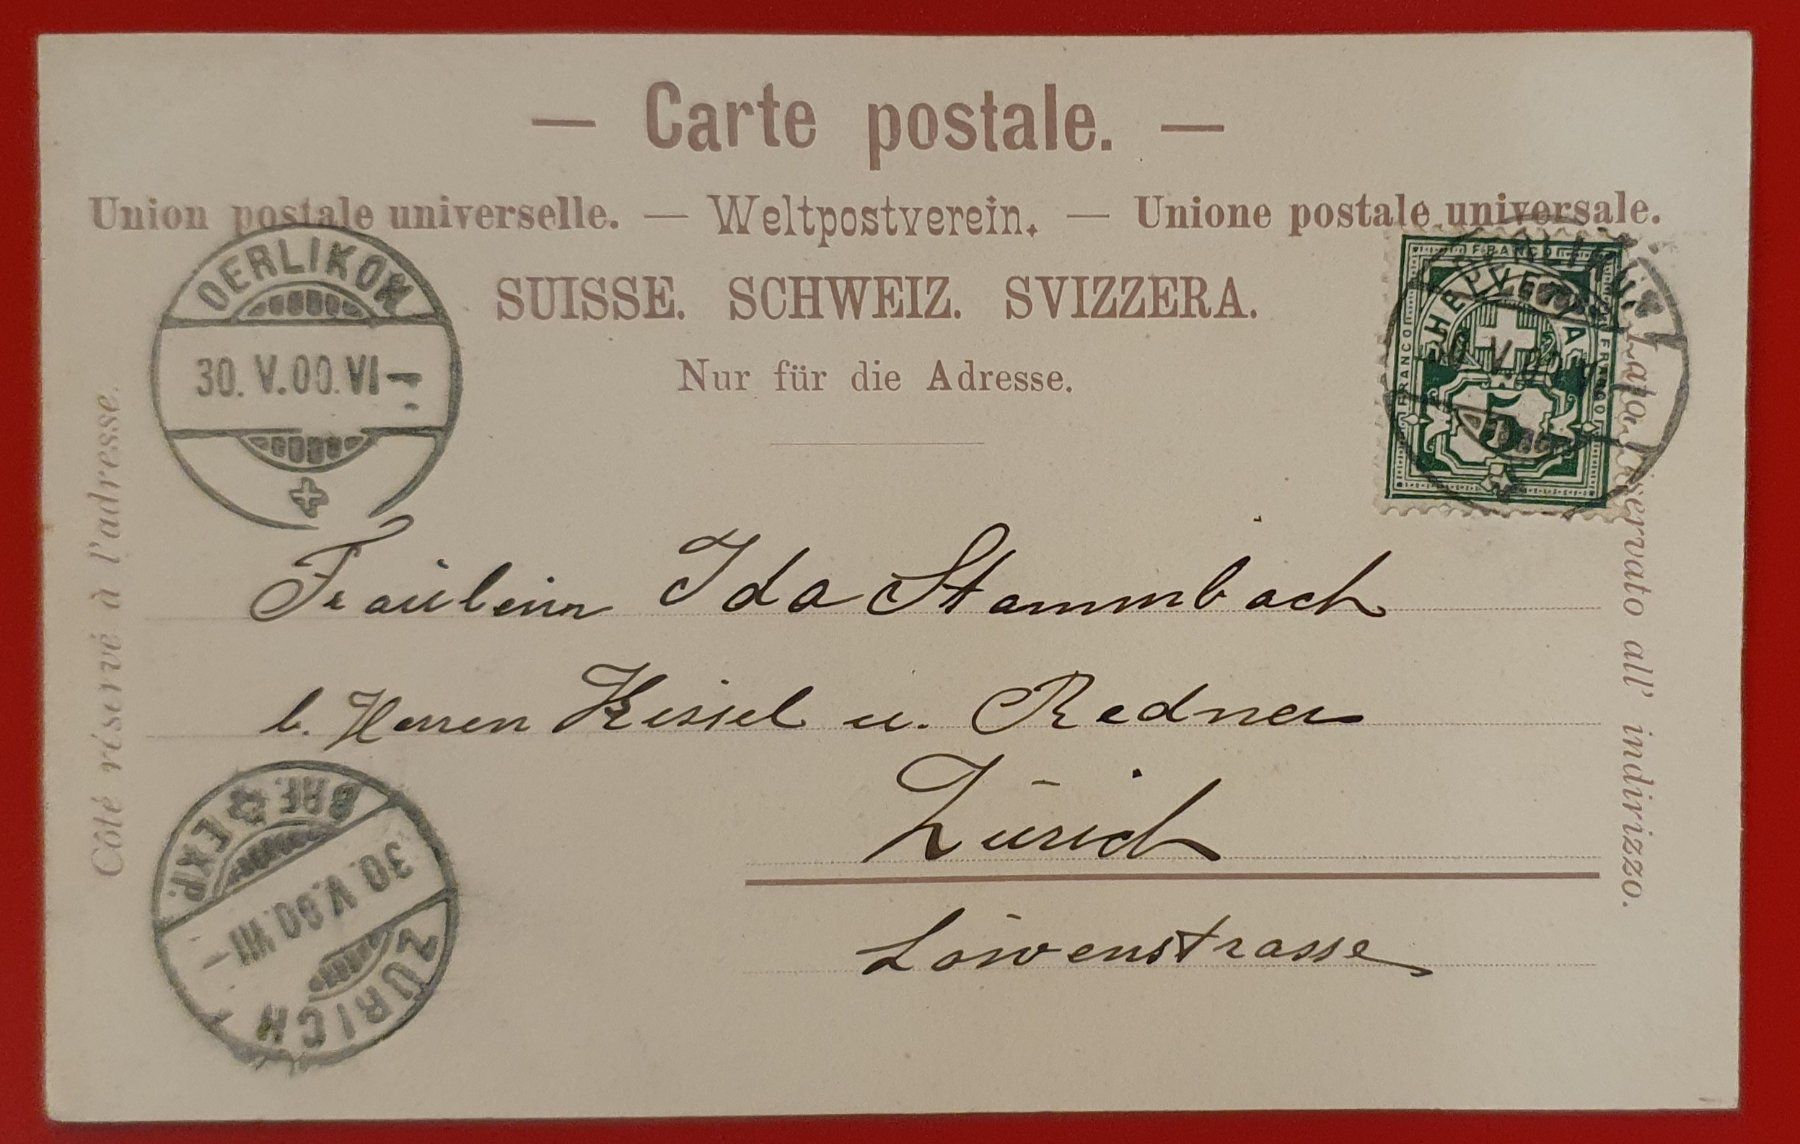 — Carte postale. —
Union postale universelle. — Weltpostverein. — Unione postale universale.
SUISSE. SCHWEIZ. SVIZZERA.
Nur für die Adresse.
Côté réservé à l'adresse.
Lato riservato all' indirizzo.
OERLIKON
30. V. 00. VI -
FRANCO
FRANCO
FRANCO
HELVETIA
5
Fräulein Ida Stammbach
b. Herren Kessel u. Redner
Zürich
Löwenstrasse
BRF. EXP.
30. V. 00. VII -
ZÜRICH